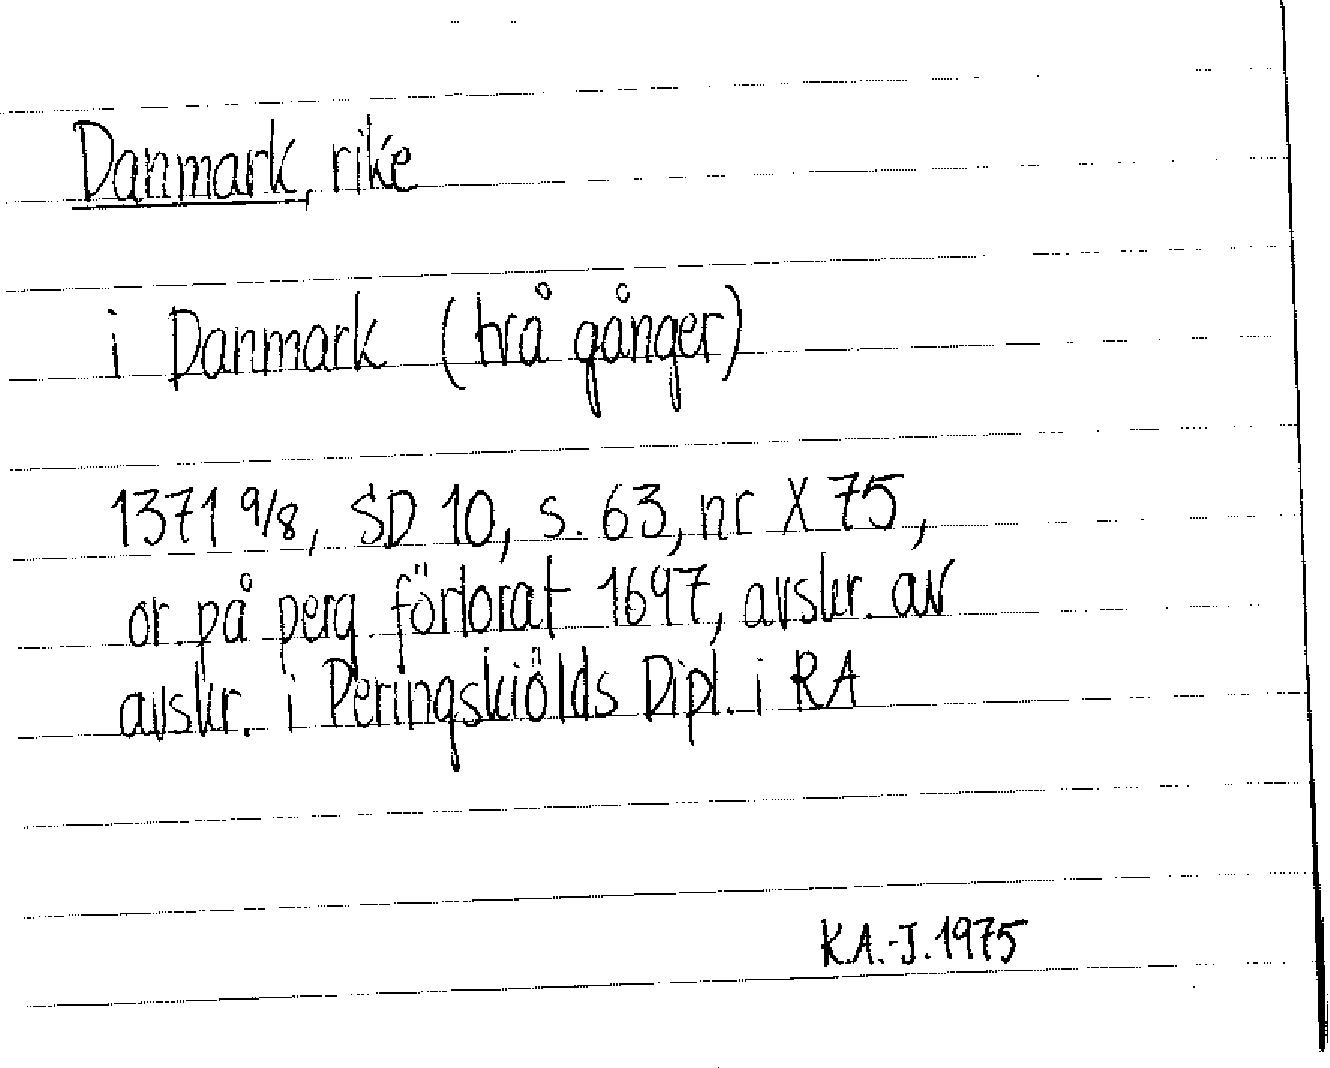 Danmark, rike
i Danmark (två gånger)
1371 9/8, SD 10, s. 63, nr X 75,
or på perg förlorat 1697, avskr. av
avskr. i Peringskiölds Dipl. i RA
K.A.-J. 1975